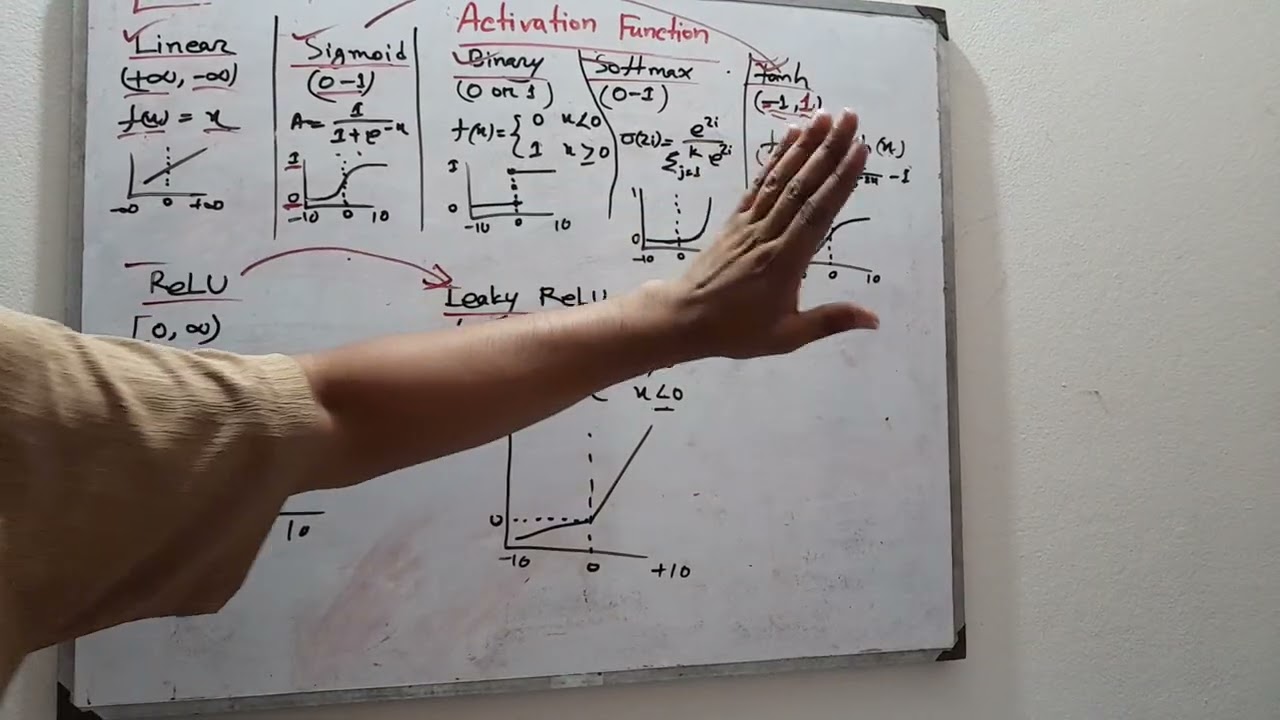 Activation Function
Linear
(+∞, -∞)
f(x) = x
-∞ 0 +∞
Sigmoid
(0-1)
A = 1 / 1+e^-x
1
0
-10 0 10
Binary
(0 or 1)
f(x) = { 0 x<0
1 x≥0
1
0
-10 0 10
Softmax
(0-1)
σ(zi) = e^zi / Σ^k_j=1 e^zi
1
0
-10 0
tanh
(-1, 1)
(x)
-1
0 10
ReLU
[0, ∞)
10
Leaky ReLU
x<0
0
-10 0 +10